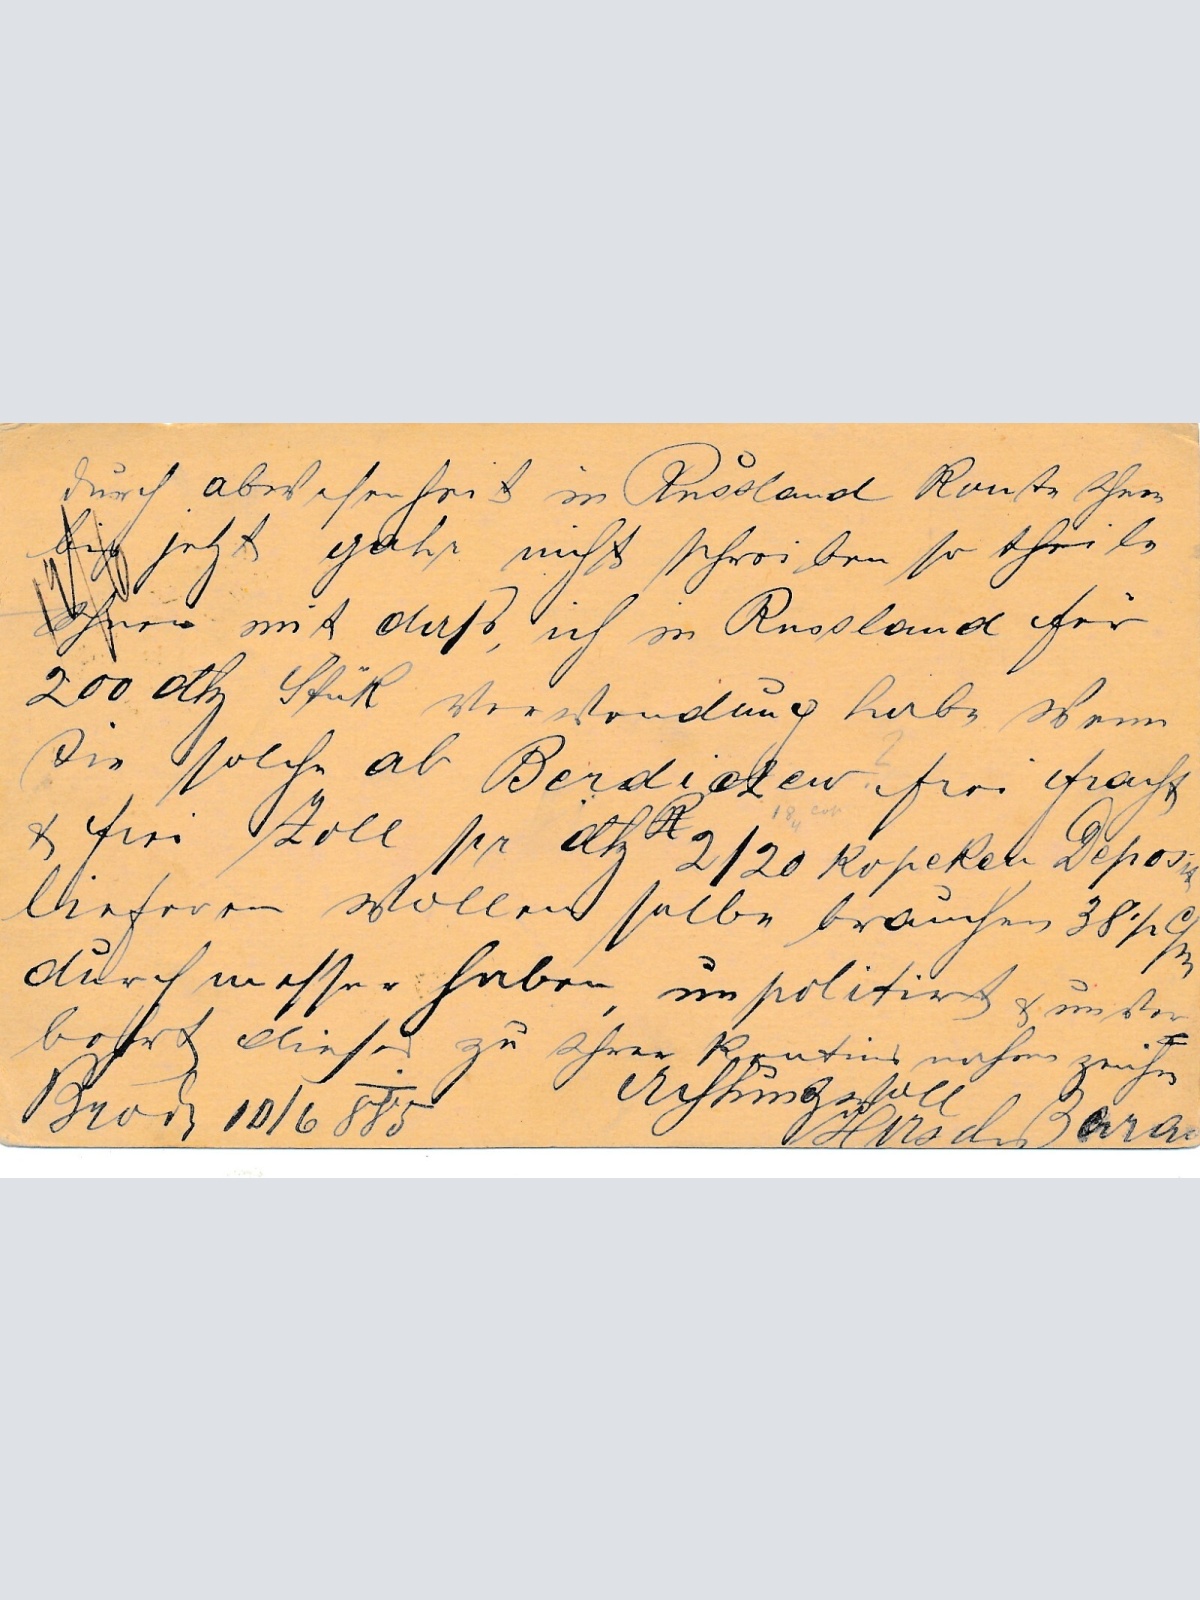 durch abwesenheit in Russland konte Ihnen
bis jetzt gahr nicht schreiben so theile
Ihnen mit dass, ich in Russland für
200 dtz Stük Verwendung habe wenn
Sie solche ab Berdiczew frei fracht
& frei Zoll pr dtz R 2/20 Kopeken Deposit
lieferen wollen selbe brauchen 38
durchmesser haben, unpolitirt & unver
bohrt dieses zu Ihrer
Brody 10/6 885 Achtungsvoll
Hirsch Barac